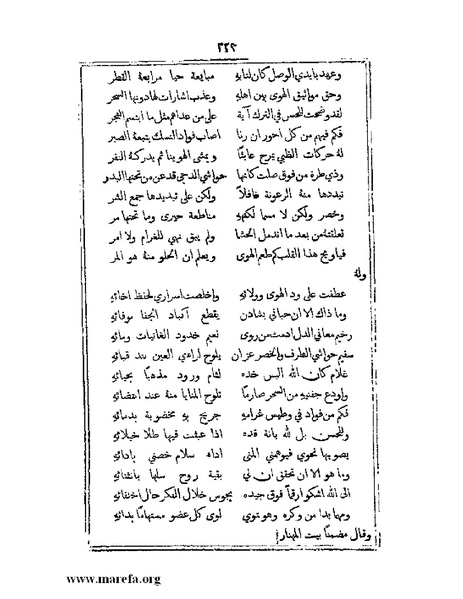 ٢٤٢
وعهد بايدي الوصل كان لنا به مبايعة حيا مرابعه القطر
وحق مواثيق الهوى بين اهله وعذب اشارات لها دونها السحر
لقد وضحت للحسن في الترك آية على من عداهم مثل ما ابتسم الفجر
فكم فيهم من كل احور ان رنا اصاب فواد النسك يتبعه الصبر
له حركات الظبي يمرح عابثا ويمشي الهوينا ثم يدركه النفر
وذي طرة من فوق صلت كانها حواشي الدجى قد عن من تحتها البدر
تبددها منه الرعونة غافلاً ولكن على تبديدها جمع الشر
وخصر ولكن لا مسما لكنهه مناطقه حيرى وما تحتها مر
تعلقته من بعد ما اندمل الحشا ولم يبق نهي للغرام ولا امر
فيا ويح هذا القلب كم طعم الهوى ويعلم ان الحلو منه هو المر
وله
عطفت على ود الهوى وولائه واخلصت اسراري لحفظ اخائه
وما ذاك الا ان حباني بشادن يقطع آكباد الجفا بوفائه
رخيم معاني الدل ادمث من روى نعيم خدود الغانيات بمائه
سقيم حواشي الطرف والخصر عز ان يلوح لراءي العين بند قبائه
غلام كان الله البس خده لثام ورود مذهبا بحيائه
واودع جفنيه من السحر صارما تلوح المنايا منه عند انتضائه
فكم من فواد في وطيس غرامه جريح به مخضوبة بدمائه
وللحسن بل لله بانة قده اذا عبثت فيها طلا خيلائه
يصوبها نحوي فيوهمني المنى اداه سلام خصني بادائه
وما هو الا ان تحقق ان لي بقية روح سلها بانثنائه
الى الله اشكو ارقما فوق جيده يجوس خلال الفكر حال اختفائه
ومهما بدا من وكره وهو ملتوي لوى كل عضو مستهاما بدائه
وقال مضمنا بيت المهنار
www.marefa.org